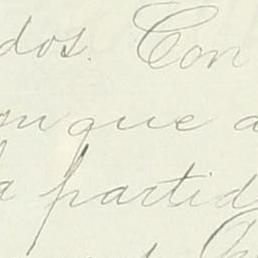 dos. Con
que a
a partid